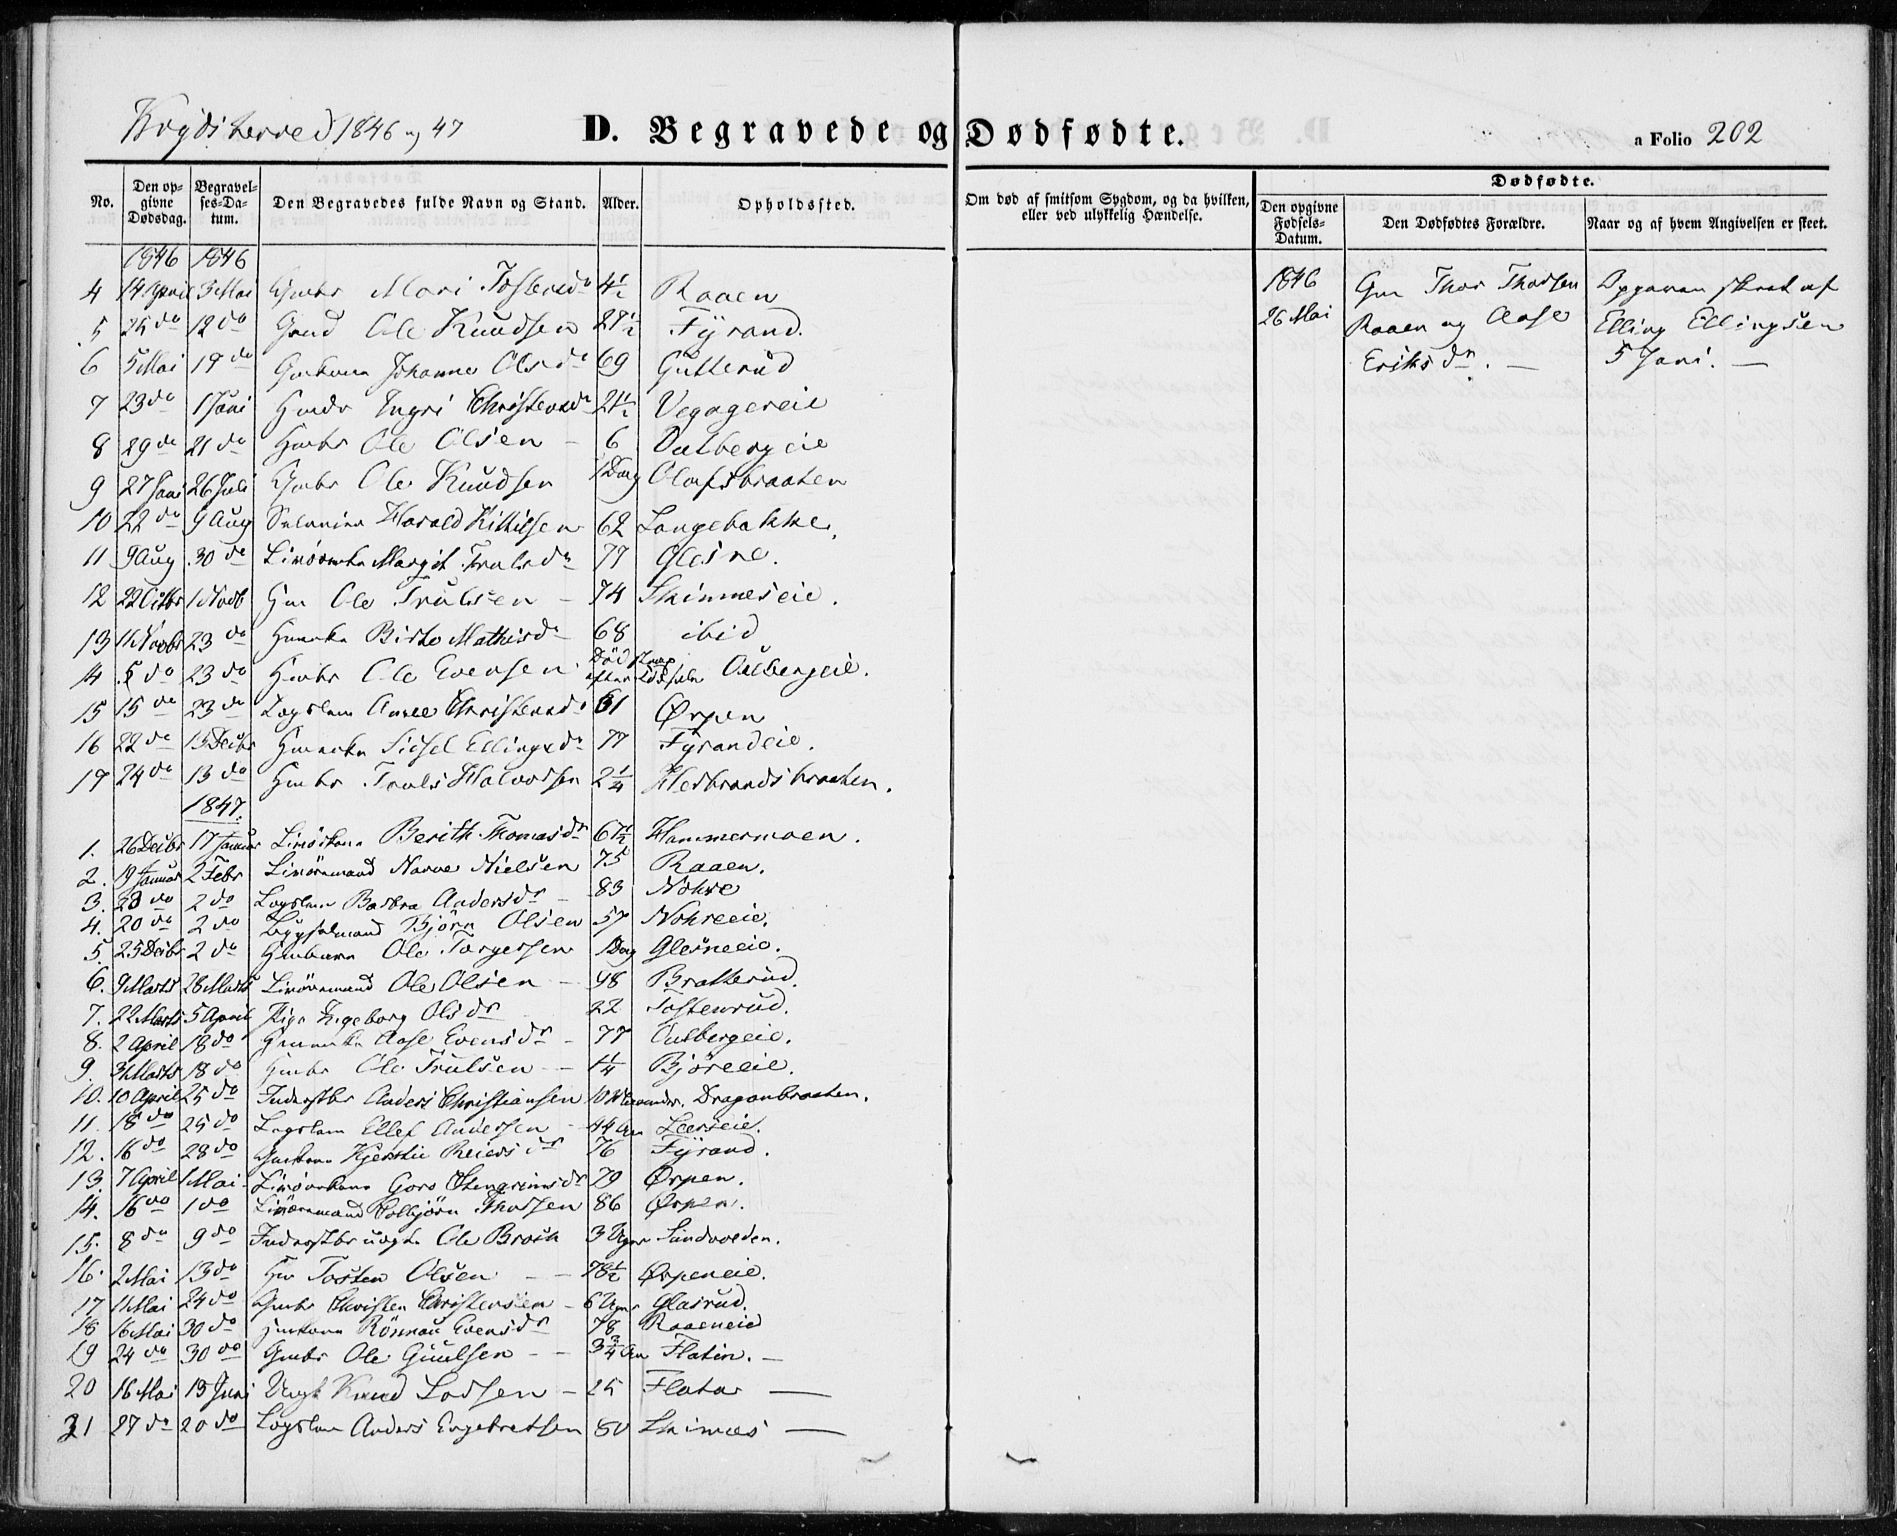 Krydsherred 1846 og 47
D. Begravede og Dødfødte.
a Folio 202
No. | Den opgivne Dødsdag. | Begravelses-Datum. | Den Begravedes fulde Navn og Stand. | Alder. | Opholdssted. | Om død af smitsom Sygdom, og da hvilken, eller ved ulykkelig Hændelse. | Dødfødte. | Den opgivne Fødsels-Datum. | Den Dødfødtes Forældre. | Naar og af hvem Angivelsen er skeet.
1846 1846
4 14 April 3 Mai Gmbr Mari Tostensdr 4½ Raaen
5 25 do 12 do Gmd Ole Knudsen 27½ Fyrand.
6 5 Mai 19 do Gmkone Johanne Olsdr 69 Gutterud
7 23 do 1 Juni Ingri Christensdr 21½ Vegagereie
8 29 do 21 do Hmbr Ole Olsen 6 Oulbergeie
9 27 Juni 26 Juli Gmbr Ole Knudsen 1 Dag Olafsbraaten
10 22 do 9 Aug Harald Kittilsen 62 Langebakke.
11 9 Aug 30 do Margit Trulsdr 77 Glesne.
12 22 Octbr 1 Novb Hm Ole Trulsen 74 Skinneseie.
13 11 Novbr 23 do Hmenke Birte Mathisdr 68 ibid
14 5 do 23 do Hmbr Ole Evensen Død strax efter Fødselen Oulbergeie.
15 15 do 23 do Lægslem Anne Christensdr 61 Ørpen
16 22 do 13 Decbr Hmenke Sidsel Ellingsdr 77 Fyrandeie.
17 24 do 13 do Hmbr Truls Halvorsen 2¼ Herbrandsbraaten.
1847.
1. 26 Decbr 17 Januar Berith Thomasdr 67½ Hammermoen.
2. 19 Januar 2 Febr Narve Nielsen 75 Raaen.
3. 23 do 2 do Lægslem Barbra Andersdr 83 Nohre
4. 20 do 2 do Bygselmand Bjørn Olsen 57 Nohreeie.
5. 25 Decbr 2 do Hmbarn Ole Torgersen 1 Dag Glesneeie.
6. 9 Marts 28 Marts Ole Olsen 48 Bratterud.
7. 22 Marts 5 April Pige Ingeborg Olsdr 22 Tostenrud.
8. 2 April 18 do Hmenke Aase Evensdr 77 Oulbergeie.
9. 31 Marts 18 do Hmbr Ole Trulsen 1¼ Bjøreeie.
10. 10 April 25 do Inderstbr Anders Christiansen 10 Maaneder. Dragonbraaten.
11. 18 do 25 do Lægslem Ellef Andersen 44 Aar Leerseie.
12. 16 do 28 do Gmkone Kjersti Reiersdr 76 Fyrand.
13. 7 April 1 Mai Goro Stengrimsdr 79 Ørpen.
14. 16 do 1 do Colbjørn Thorsen 86 Ørpen.
15. 8 do 9 do Inderstbr uægte Ole 3 Uger Sundvolden.
16. 2 Mai 13 do Hm Tosten Olsen 78½ Ørpeneie.
17 11 Mai 24 do Gmbr Christen Christensen 6 Uger Glasrud.
18 16 Mai 30 do Hmkone Rønnau Evensdr 78 Raaeneie
19 24 do 30 do Gmbr Ole Gjuulsen 3¾ Aar Flatin.
20 16 Mai 13 Juni Ungk Knud Larsen 25 Flater
21 27 do 20 do Lægslem Anders Engebretsen 80 Skinnes
1846 Gm Thor Thorsen Opgaven skeet af
26 Mai Raaen og Aase Elling Ellingsen
Eriksdr. 5 Juni.